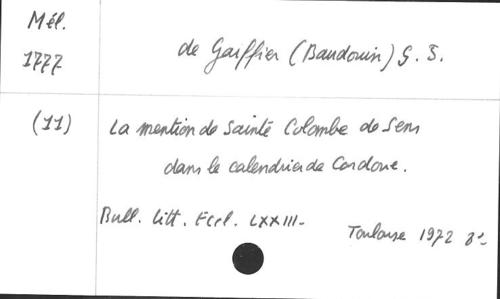 Mél.
1777
de Gaiffier (Baudouin) S. J.
(11)
La mention de Sainte Colombe de Sens
dans le calendrier de Cordoue.
Bull. Litt. Eccl. LXXIII-
Toulouse 1972 8°